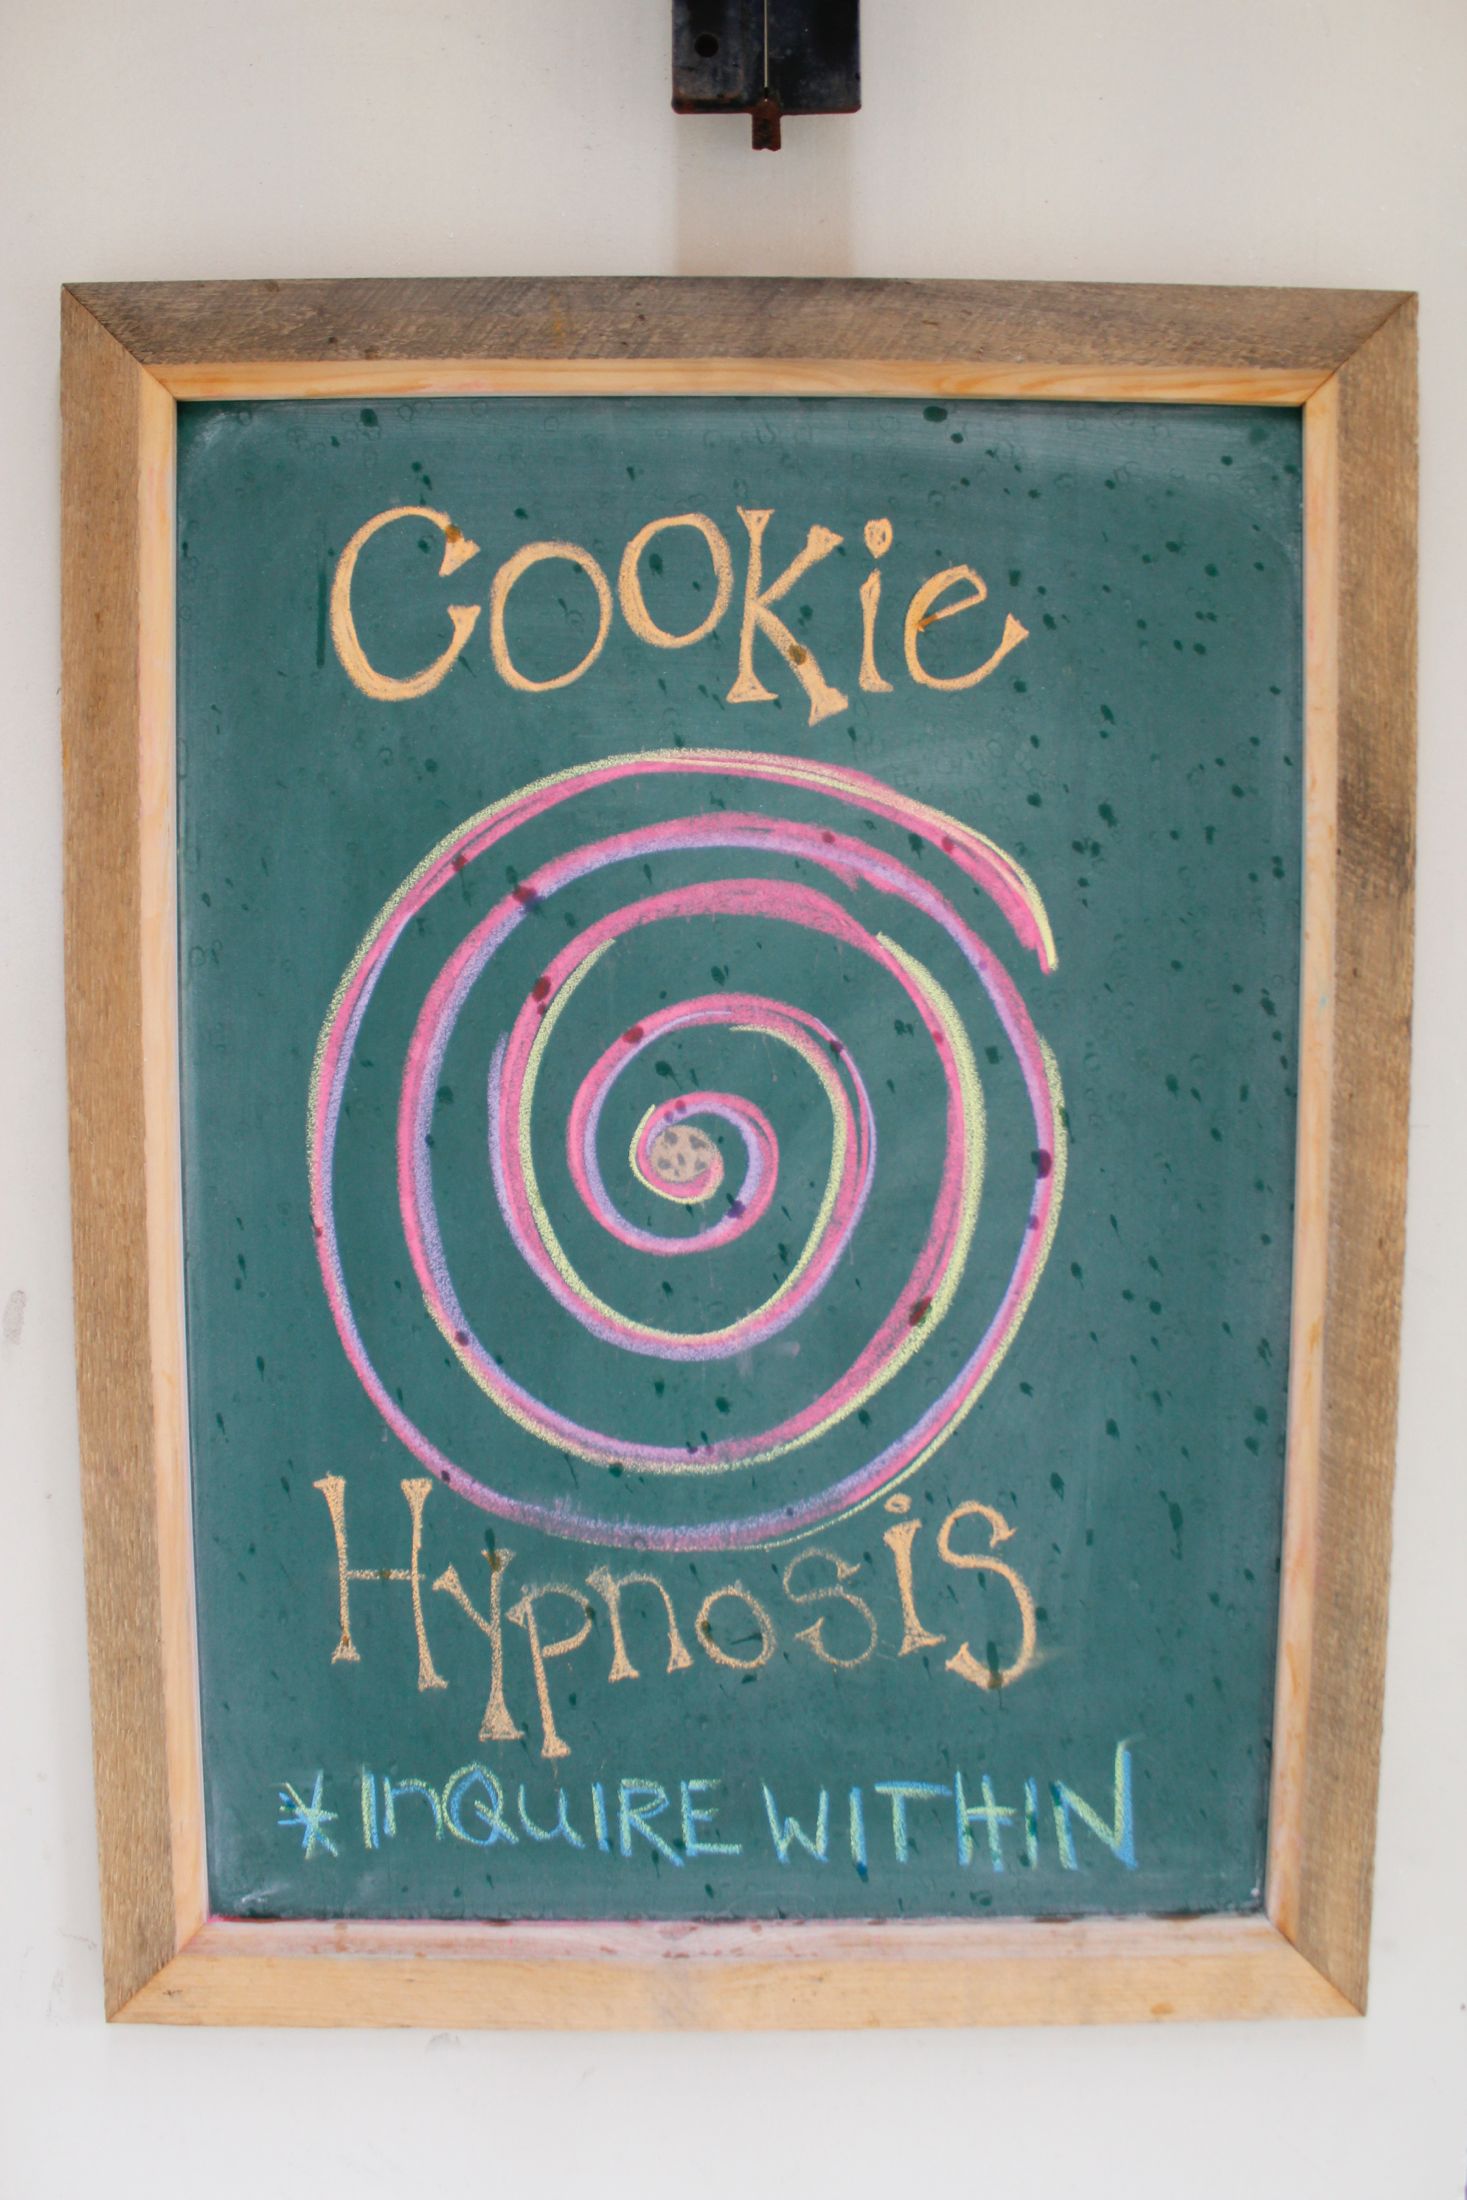 Cookie
Hypnosis
*InQuIRE WITHIN